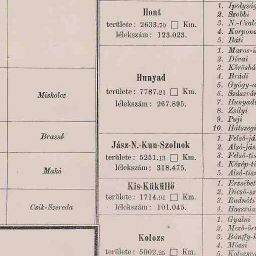 Miskolcz
Brassó
Makó
Csik-Szereda
Hont
területe : 2633.70 □ Km.
lélekszám : 123.023.
Hunyad
területe : 7787.21 □ Km.
lélekszám : 267.895.
Jász-N.-Kun-Szolnok
területe : 5251.13 □ Km.
lélekszám : 318.475.
Kis-Küküllő
területe : 1714.94 □ Km.
lélekszám : 101.045.
Kolozs
területe : 5002.25 □ Km.
1. Ipolyság
2. Szobbi
4. Korpona
5. Báti
1. Maros-i
2. Dévai
3. Kőrösbá
4. Brádi
7. Hunyadi
9. Puji
10. Hátszegi
1. Felső-já
2. Alsó-jás
3. Felső-tis
4. Közép-ti
5. Alsó-tisz
1. Erzsébet
2. Dicső-sz
3. Radnóti
1. Gyalui
2. Mező-ör
3. Bánffy-h
4. Mócsi